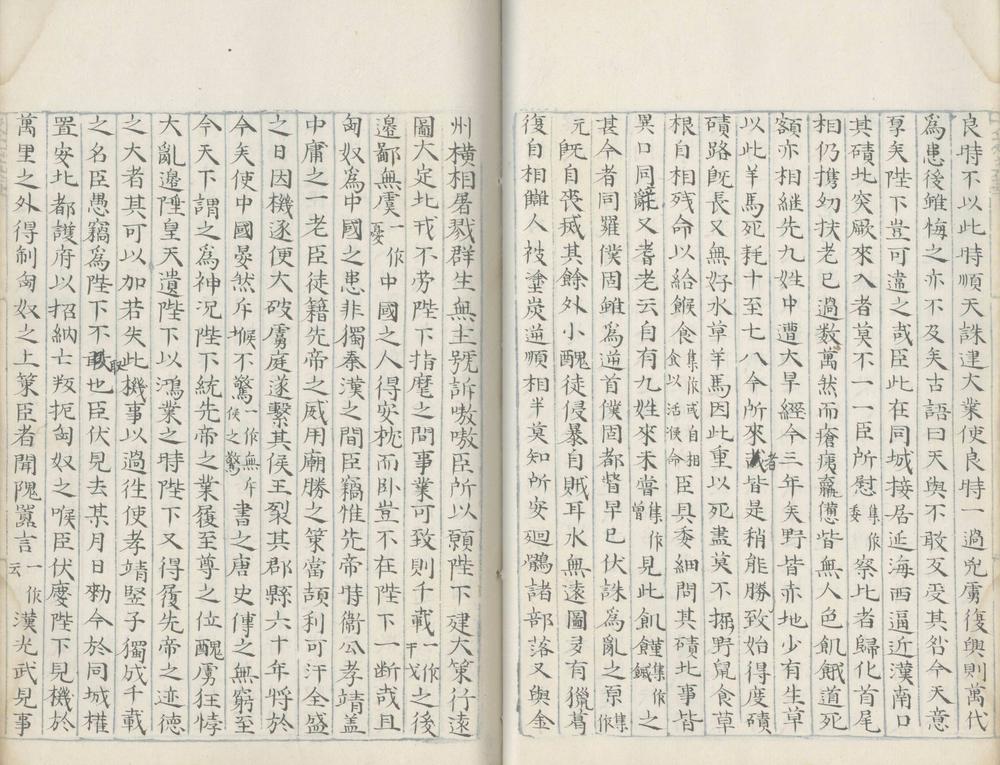 良時不以此時順天誅建大業使良時一過兇虜復興則萬代
為患後雖悔之亦不及矣古語曰天與不敢反受其咎今天意
厚矣陛下豈可違之哉臣此在同城接居延海西逼近漠南口
其磧北突厥來入者莫不一一臣所慰集作委察比者歸化首尾
相仍攜幼扶老已過数萬然而瘡痍羸憊皆無人色飢餓道死
額亦相継先九姓中遭大旱經今三年矣野皆赤地少有生草
以此羊馬死耗十至七八今所來者皆是稍能勝致始得度磧
磧路旣長又無好水草羊馬因此重以死盡莫不掘野鼠食草
根自相殘命以給餱食集作或自相食以活喉命臣具委細問其磧北事皆
異口同辭又耆老云自有九姓來未嘗集作曾見此飢饉集作饑之
甚今者同羅僕固雖為逆首僕固都督早已伏誅為亂之原集作
元旣自喪滅其餘外小醜徒侵暴自賊耳水無遠圖多有獵葛
復自相讎人被塗炭逆順相半莫知所安迴鶻諸部落又與金
州橫相屠戮群生無主號訴嗷嗷臣所以願陛下建大策行遠
圖大定北戎不劳陛下指麾之間事業可致則千載一作干戈之後
邊鄙無虞一作憂中國之人得安枕而卧豈不在陛下一断哉且
匈奴為中國之患非獨秦漢之間臣竊惟先帝時衛公李靖蓋
中庸之一老臣徒籍先帝之威用廟勝之策當頡利可汗全盛
之日因機遂便大破虜庭遂繫其侯王裂其郡縣六十年將於
今矣使中國晏然斥堠不驚一作無斥候之驚書之唐史傳之無窮至
今天下謂之為神况陛下統先帝之業履至尊之位醜虜狂悖
大亂邊陲皇天遺陛下以鴻業之時陛下又得履先帝之迹德
之大者其可以加若失此機事以過徃使李靖竪子獨成千載
之名臣愚竊為陛下不取也臣伏見去某月日勑今於同城權
置安北都護府以招納亡叛扼匈奴之喉臣伏慶陛下見機於
萬里之外得制匈奴之上策臣者聞隗囂言一作云漢光武見事